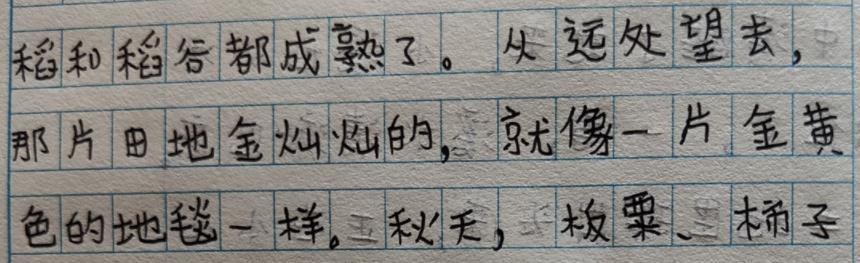 稻和稻谷都成熟了。从远处望去，
那片田地金灿灿的，就像一片金黄
色的地毯一样。秋天，板粟、柿子